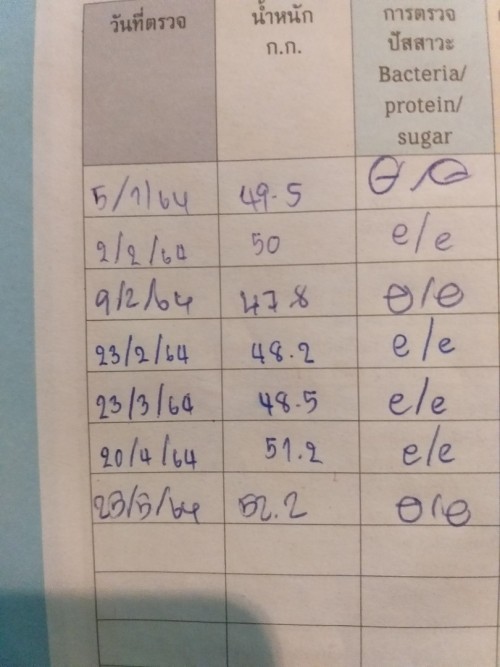 วันที่ตรวจ น้ำหนัก ก.ก. การตรวจ ปัสสาวะ Bacteria/ protein/ sugar
5/1/64 49.5 ⊖/⊖
2/2/64 50 e/e
9/2/64 47.8 ⊖/⊖
23/2/64 48.2 e/e
23/3/64 48.5 e/e
20/4/64 51.2 e/e
25/5/64 52.2 ⊖/⊖